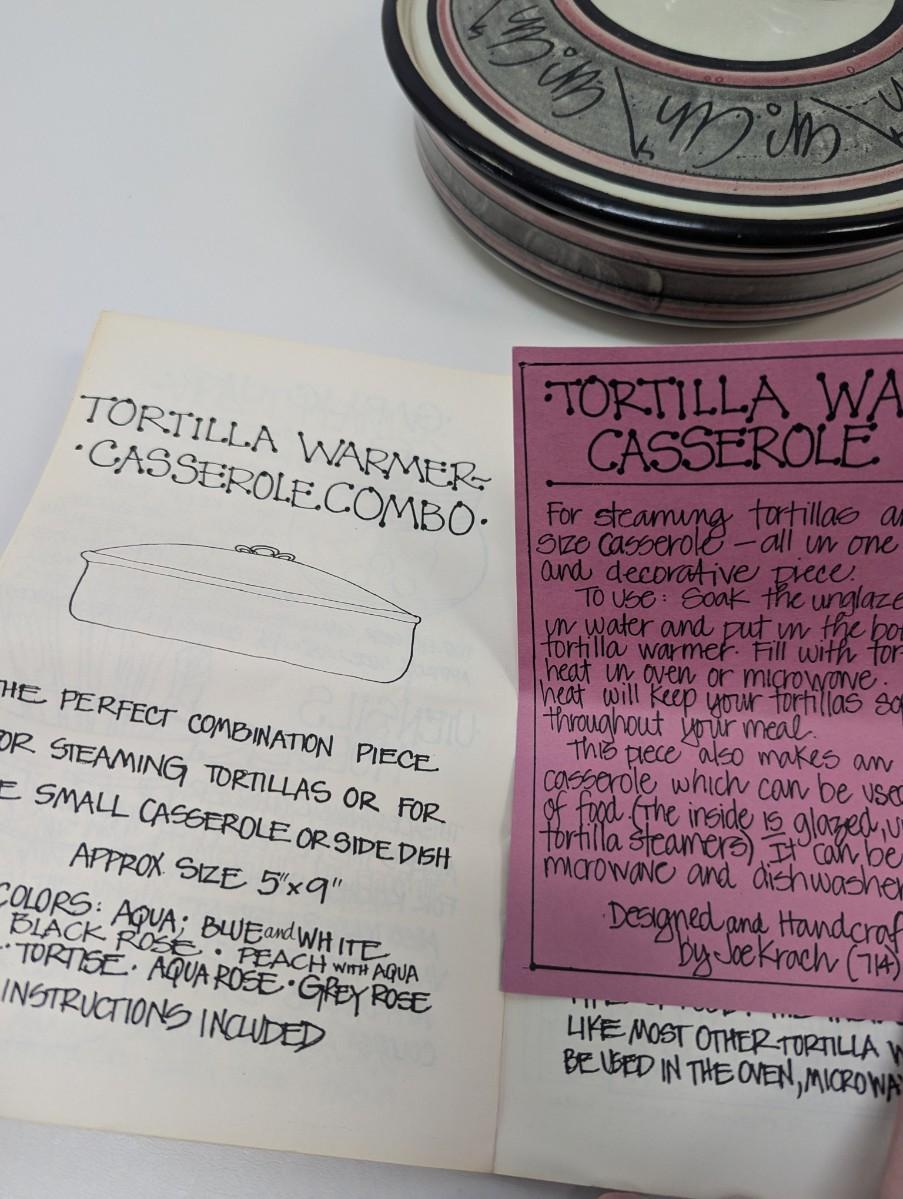 TORTILLA WARMER~
·CASSEROLE COMBO·
THE PERFECT COMBINATION PIECE
OR STEAMING TORTILLAS OR FOR
E SMALL CASSEROLE OR SIDE DISH
APPROX. SIZE 5"x9"
COLORS: AQUA; BLUE and WHITE
BLACK ROSE · PEACH WITH AQUA
· TORTISE · AQUA ROSE · GREY ROSE
INSTRUCTIONS INCLUDED
·TORTILLA WA
CASSEROLE
For steaming tortillas a
size casserole — all in one
and decorative piece.
To use: Soak the unglaze
in water and put in the bo
tortilla warmer. Fill with tor
heat in oven or microwave.
heat will keep your tortillas so
throughout your meal.
This piece also makes an
casserole which can be use
of food. (The inside is glazed, u
tortilla steamers) It can be
microwave and dishwasher
Designed and Handcraf
by Joe Krach (714)
LIKE MOST OTHER TORTILLA W
BE USED IN THE OVEN, MICROWA